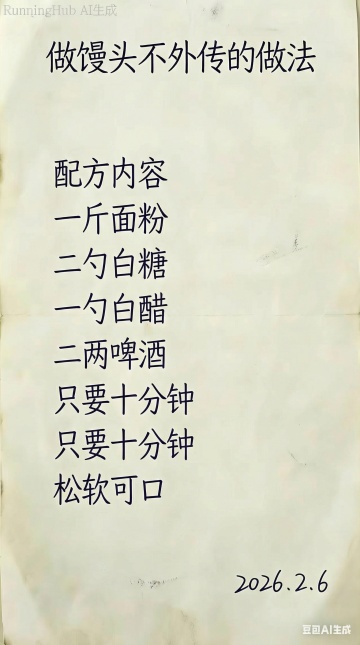 RunningHub AI生成
做馒头不外传的做法
配方内容
一斤面粉
二勺白糖
一勺白醋
二两啤酒
只要十分钟
只要十分钟
松软可口
2026.2.6
豆包AI生成